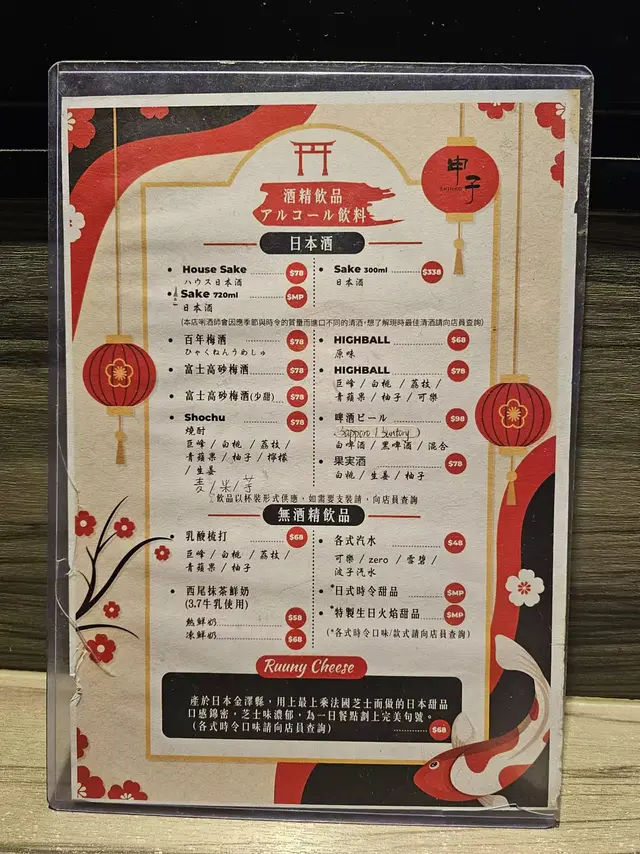 申子
酒精飲品
アルコール飲料
日本酒
House Sake $78
ハウス日本酒
Sake 720ml $MP
日本酒
Sake 300ml $338
日本酒
(本店唎酒師會因應季節與時令的質量而進口不同的清酒,想了解現時最佳清酒請向店員查詢)
百年梅酒 $78
ひゃくねんうめしゅ
富士高砂梅酒 $78
富士高砂梅酒(少甜) $78
Shochu $78
燒酎
巨峰 / 白桃 / 荔枝 /
青蘋果 / 柚子 / 檸檬
/ 生姜
麦 / 米 / 芋
HIGHBALL $68
原味
HIGHBALL $78
巨峰 / 白桃 / 荔枝 /
青蘋果 / 柚子 / 可樂
啤酒ビール $98
(Sapporo / Suntory)
白啤酒 / 黑啤酒 / 混合
果実酒 $78
白桃 / 生姜 / 柚子
飲品以杯裝形式供應，如需要支裝請，向店員查詢
無酒精飲品
乳酸梳打 $68
巨峰 / 白桃 / 荔枝 /
青蘋果 / 柚子
西尾抹茶鮮奶
(3.7牛乳使用)
熱鮮奶 $58
凍鮮奶 $68
各式汽水 $48
可樂 / zero / 雪碧 /
波子汽水
*日式時令甜品 $MP
*特製生日火焰甜品 $MP
(*各式時令口味/款式請向店員查詢)
Ruuny Cheese
產於日本金澤縣，用上最上乘法國芝士而做的日本甜品
口感錦密，芝士味濃郁，為一日餐點劃上完美句號。
(各式時令口味請向店員查詢) $68